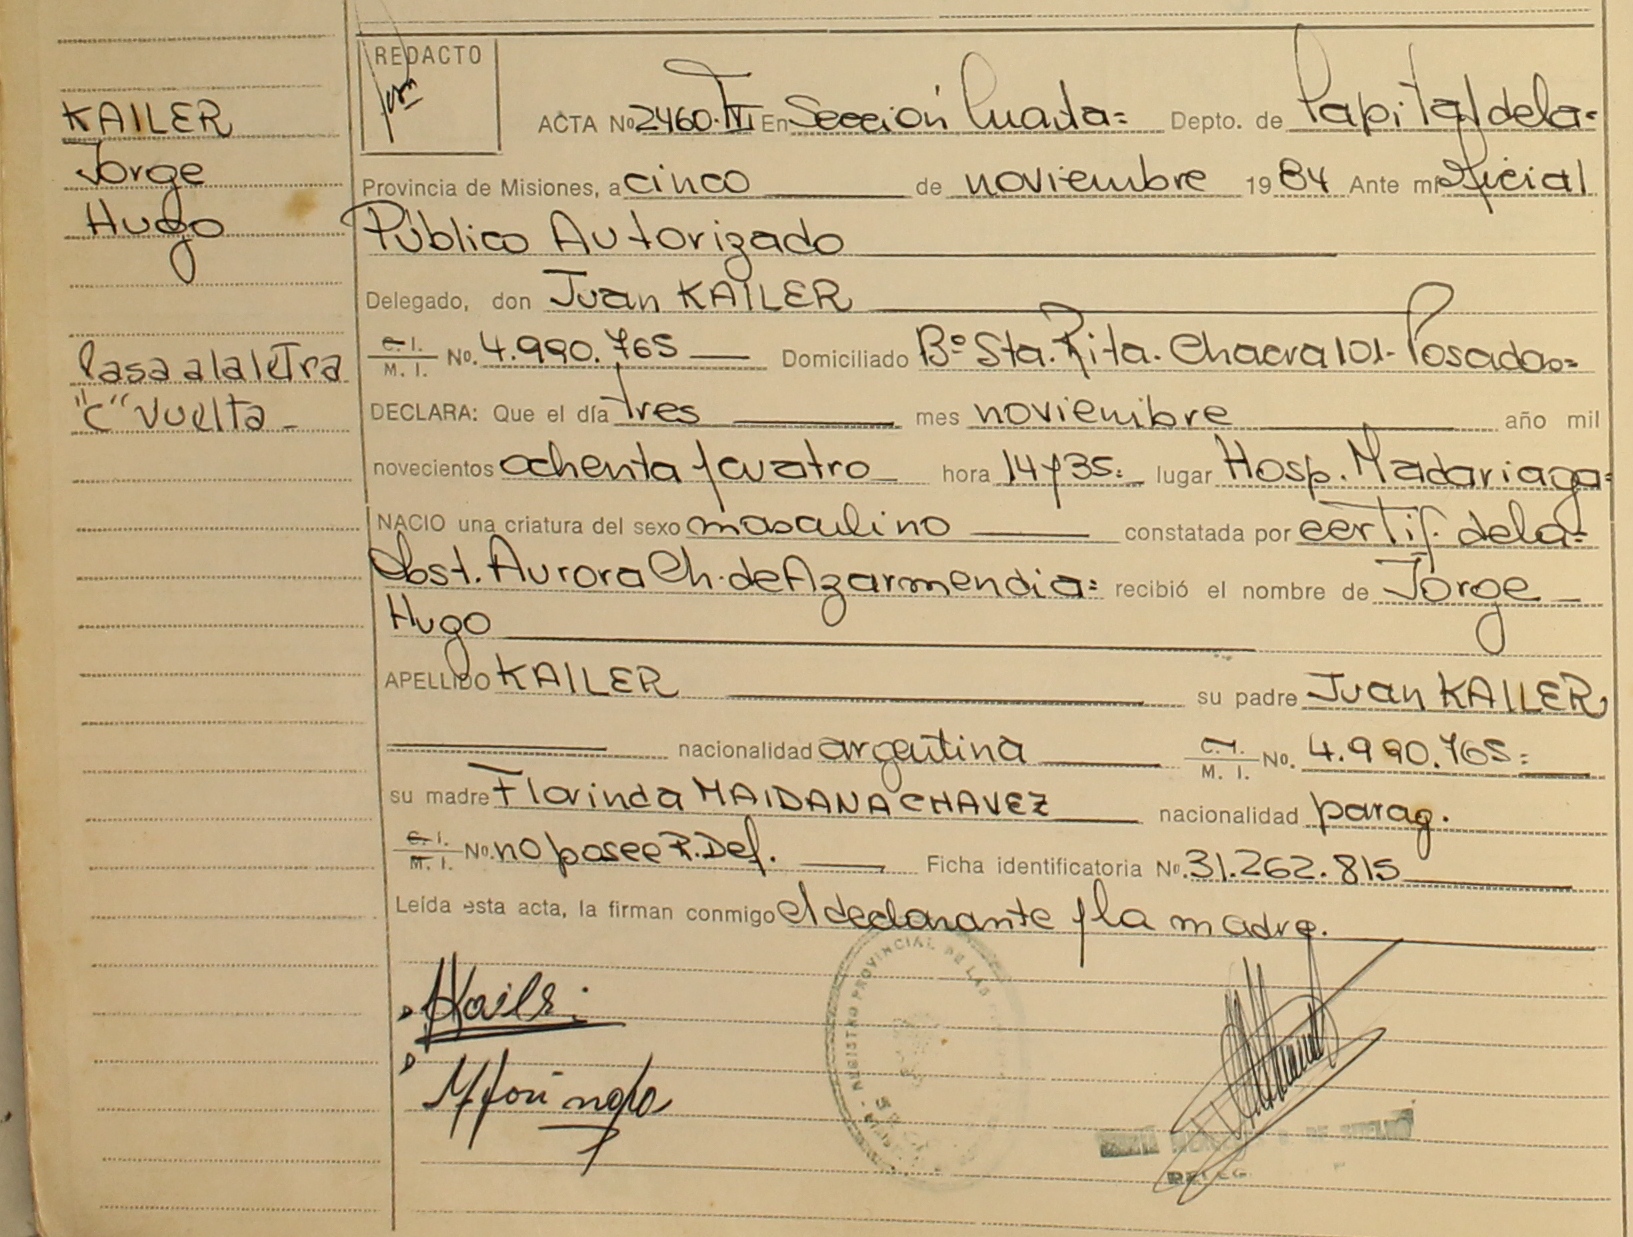 KAILER
Jorge
Hugo
Pasa a la letra
"C" vuelta-
REDACTO
ACTA Nº 2460.TVI En Sección Cuarta= Depto. de Capital de la=
Provincia de Misiones, a cinco de noviembre 1984 Ante mi Oficial
Público Autorizado
Delegado, don Juan KAILER
C. I. / M. I. No. 4.990.765 Domiciliado Bº Sta. Rita. Chacra 101- Posadas=
DECLARA: Que el día tres mes noviembre año mil
novecientos ochenta y cuatro hora 14 y 35: lugar Hosp. Madariaga=
NACIO una criatura del sexo masculino constatada por certif. de la=
Obst. Aurora Ch. de Azarmendia: recibió el nombre de Jorge
Hugo
APELLIDO KAILER su padre Juan KAILER
nacionalidad argentina C. I. / M. I. No. 4.990.765=
su madre Florinda MAIDANA CHAVEZ nacionalidad parag.
C. I. / M. I. No. no posee R. Def. Ficha identificatoria Nº. 31.262.815
Leída esta acta, la firman conmigo el declarante y la madre.
REGISTRO PROVINCIAL DE LAS